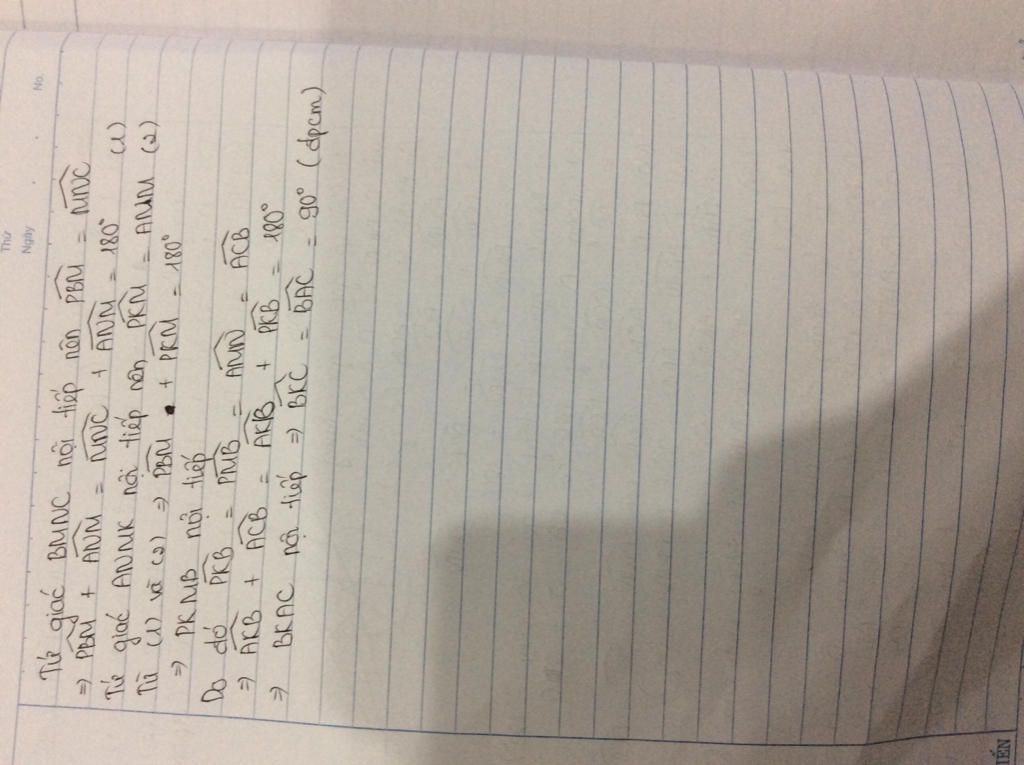 Thứ
Ngày
No.
Tứ giác BMNC nội tiếp nên PBM = MNC
⇒ PBM + ANM = MNC + ANM = 180° (1)
Tứ giác ANMK nội tiếp nên PKM = ANM (2)
Từ (1) và (2) ⇒ PBM + PKM = 180°
⇒ PKMB nội tiếp
Do đó PKB = PMB = AMN = ACB
⇒ AKB + ACB = AKB + PKB = 180°
⇒ BKAC nội tiếp ⇒ BKC = BAC = 90° (đpcm)
IẾN